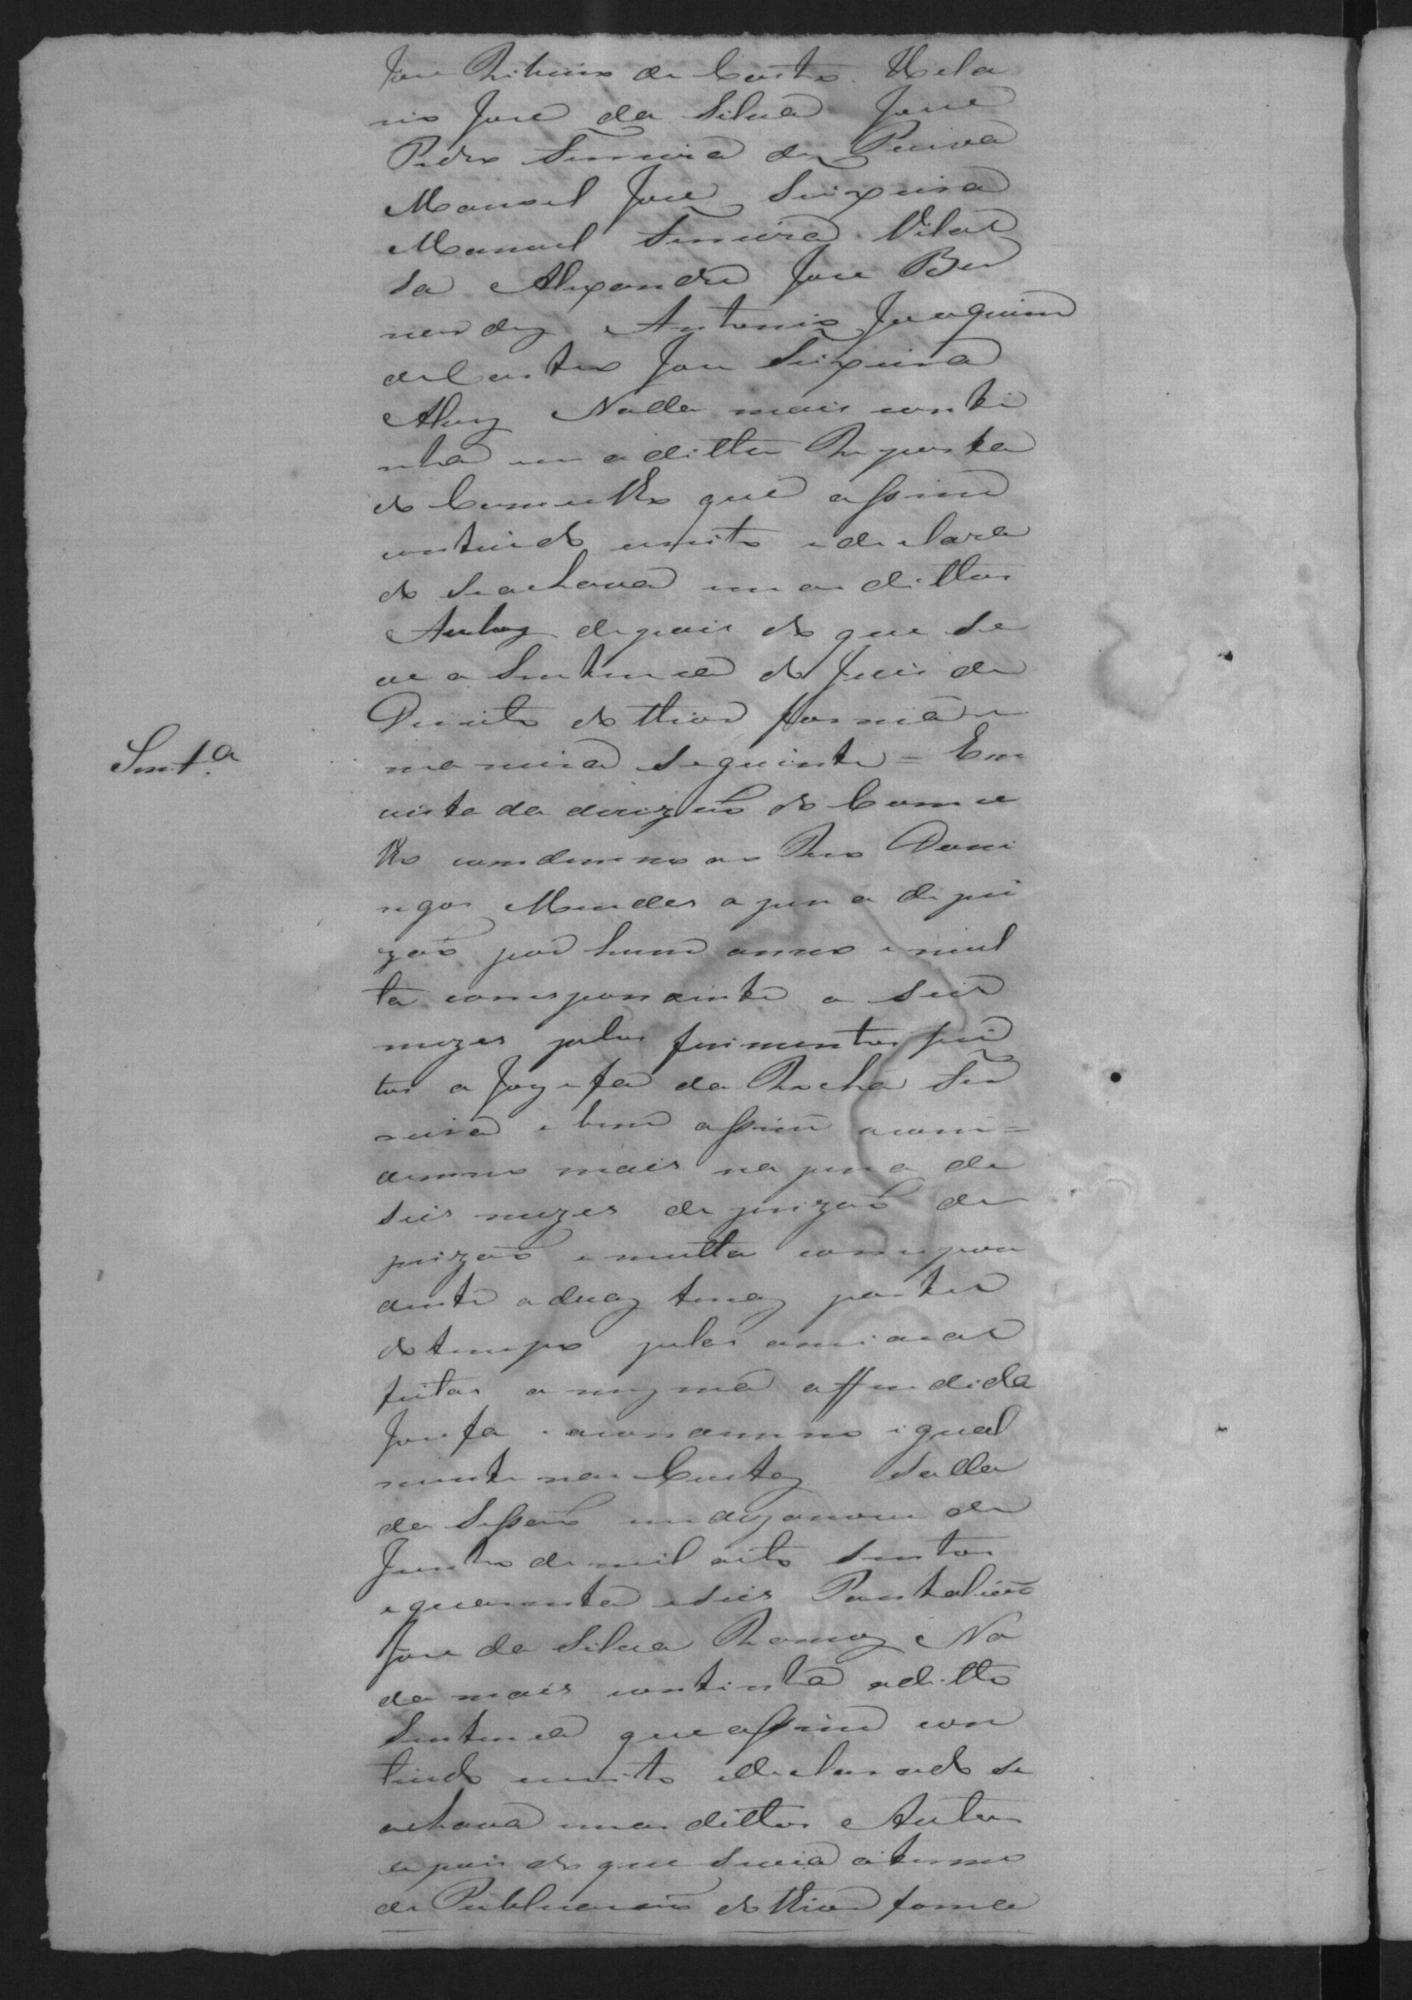 Jose Ribeiro de Castro Hela
rio Jose da Silva Jose
Pedro Ferreira de Paiva
Manoel Jose Teixeira
Manoel Ferreira Vilas
da Alexandre Jose Ber
nardez Antonio Joaquim
de Castro Jose Teixeira
Alvez Nada mais conti
nha em a ditta Reposta
do Concelho que assim
contiudo escrito e declara
do se achava em os dittos
Autos depois do que se
ve a Sentenca do Juis de
Direito do thior forma e
maneira seguinte = Em
Sent.ª
vista da decizão do Conce
lho condemno ao Reo Domi
ngos Mendes a pena de pri
zaõ por hum anno e mul
ta correspondente a seis
mezes pelos ferimentos fei
tos a Jozefa da Rocha Fer
reira e bem assim o con=
demno mais na pena de
seis mezes de prizaõ de
prizaõ e multa correspon
dente a duaz terçaz partes
do tempo pelas ameaças
feitas a mezma offendida
Josefa e o condemno igual
mente nas Custaz Salla
da Sessaõ em dezanove de
Junho de mil oito sentos
e quarenta e seis Pantaliaõ
Jose da Silva Ramoz Na
da mais continha a ditta
Sentenca que assim con
tiudo escrito e declarado se
achava em os dittos Autos
depois do que se via o termo
de Publicacaõ do thior forma